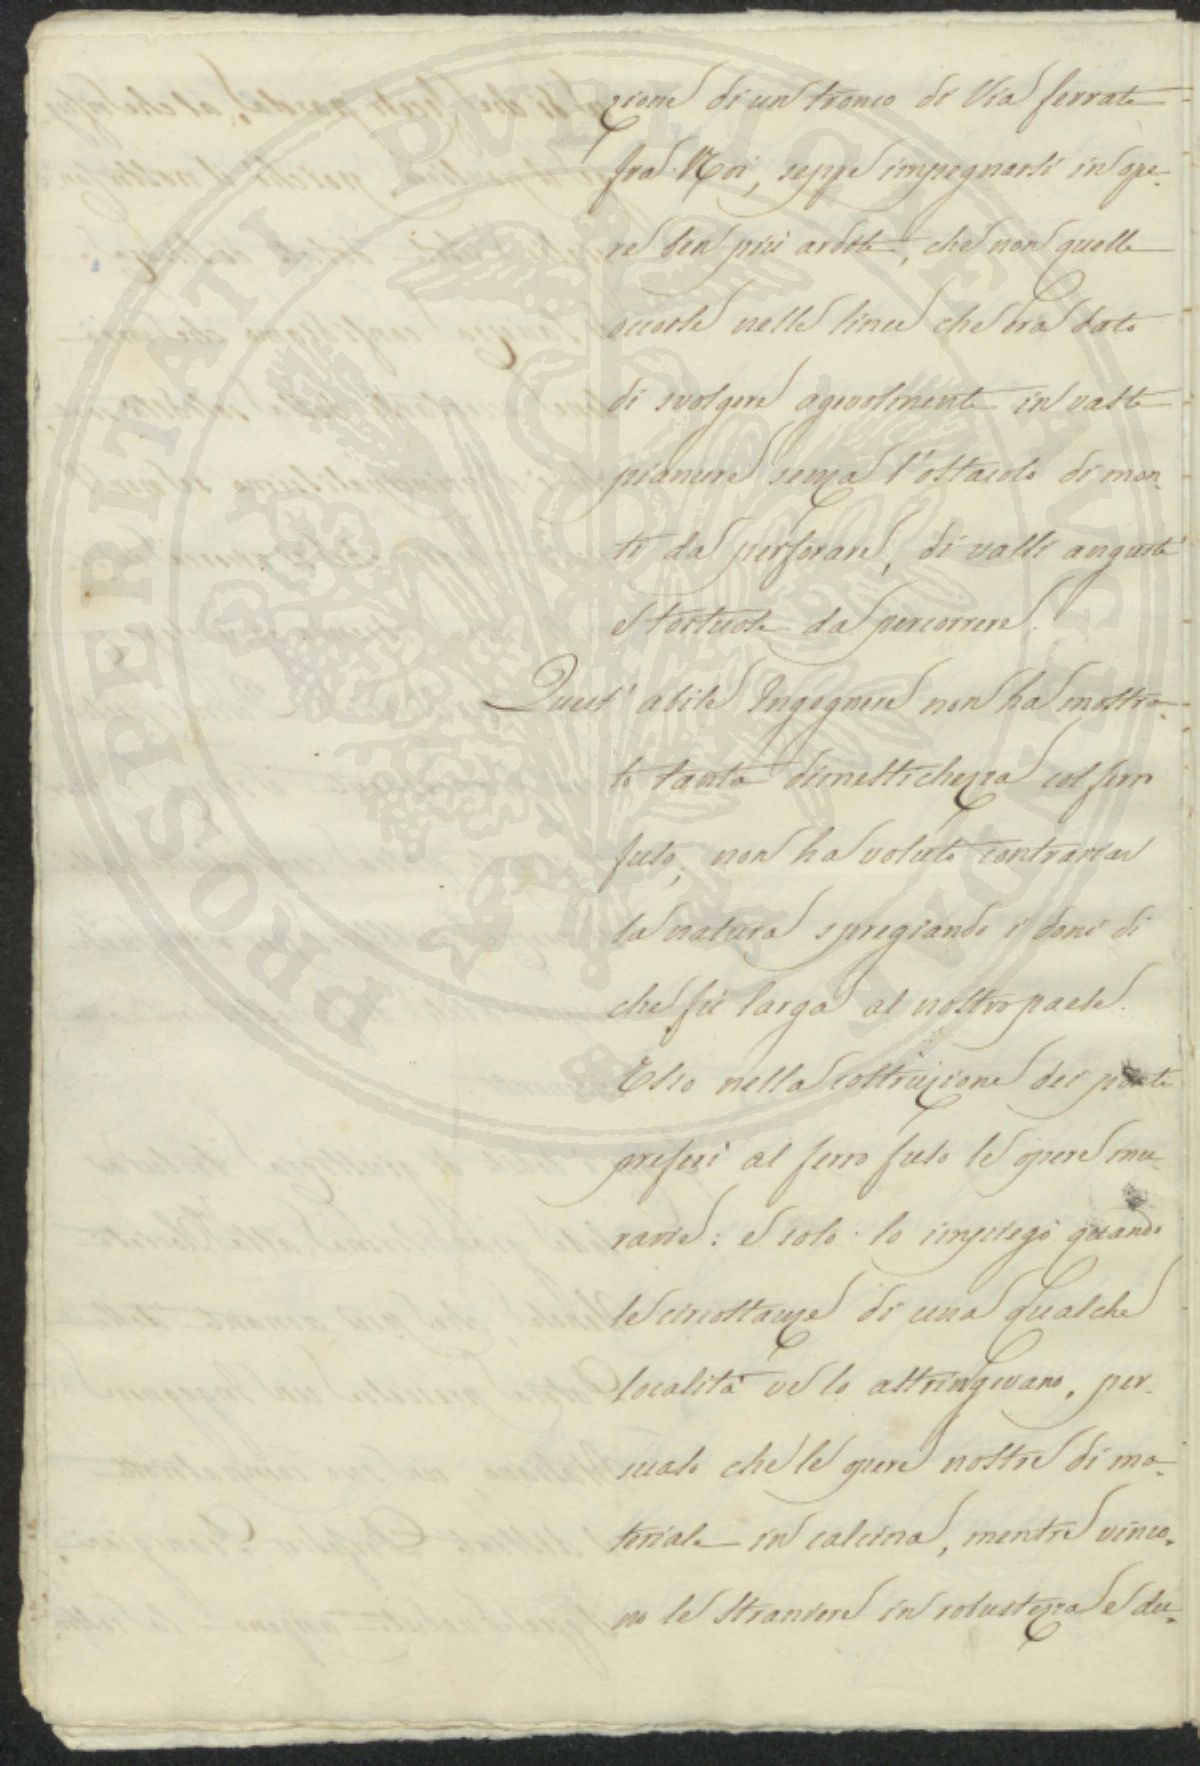 zione di un tronco di Via ferrata
fra Noi, seppe impegnarsi in ope-
re ben più ardite, che non quelle
occorse nelle linee che era dato
di svolgere agevolmente in vaste
pianure senza l'ostacolo di mon-
ti da perforare, di valli anguste
e tortuose da percorrere.
Quest' abile Ingegnere non ha mostra-
to tanta dimestichezza col ferro
fuso, non ha voluto contrariar
la natura spregiando i doni di
che fù larga al nostro paese.
Esso nella costruzione dei ponti
preferì al ferro fuso le opere mu-
rarie: e solo lo impiegò quando
le circostanze di una qualche
località ve lo astringevano, per-
suaso che le opere nostre di ma-
teriale in calcina, mentre vinco-
no le straniere in robustezza e du-
PROSPERITATI PUBLICAE